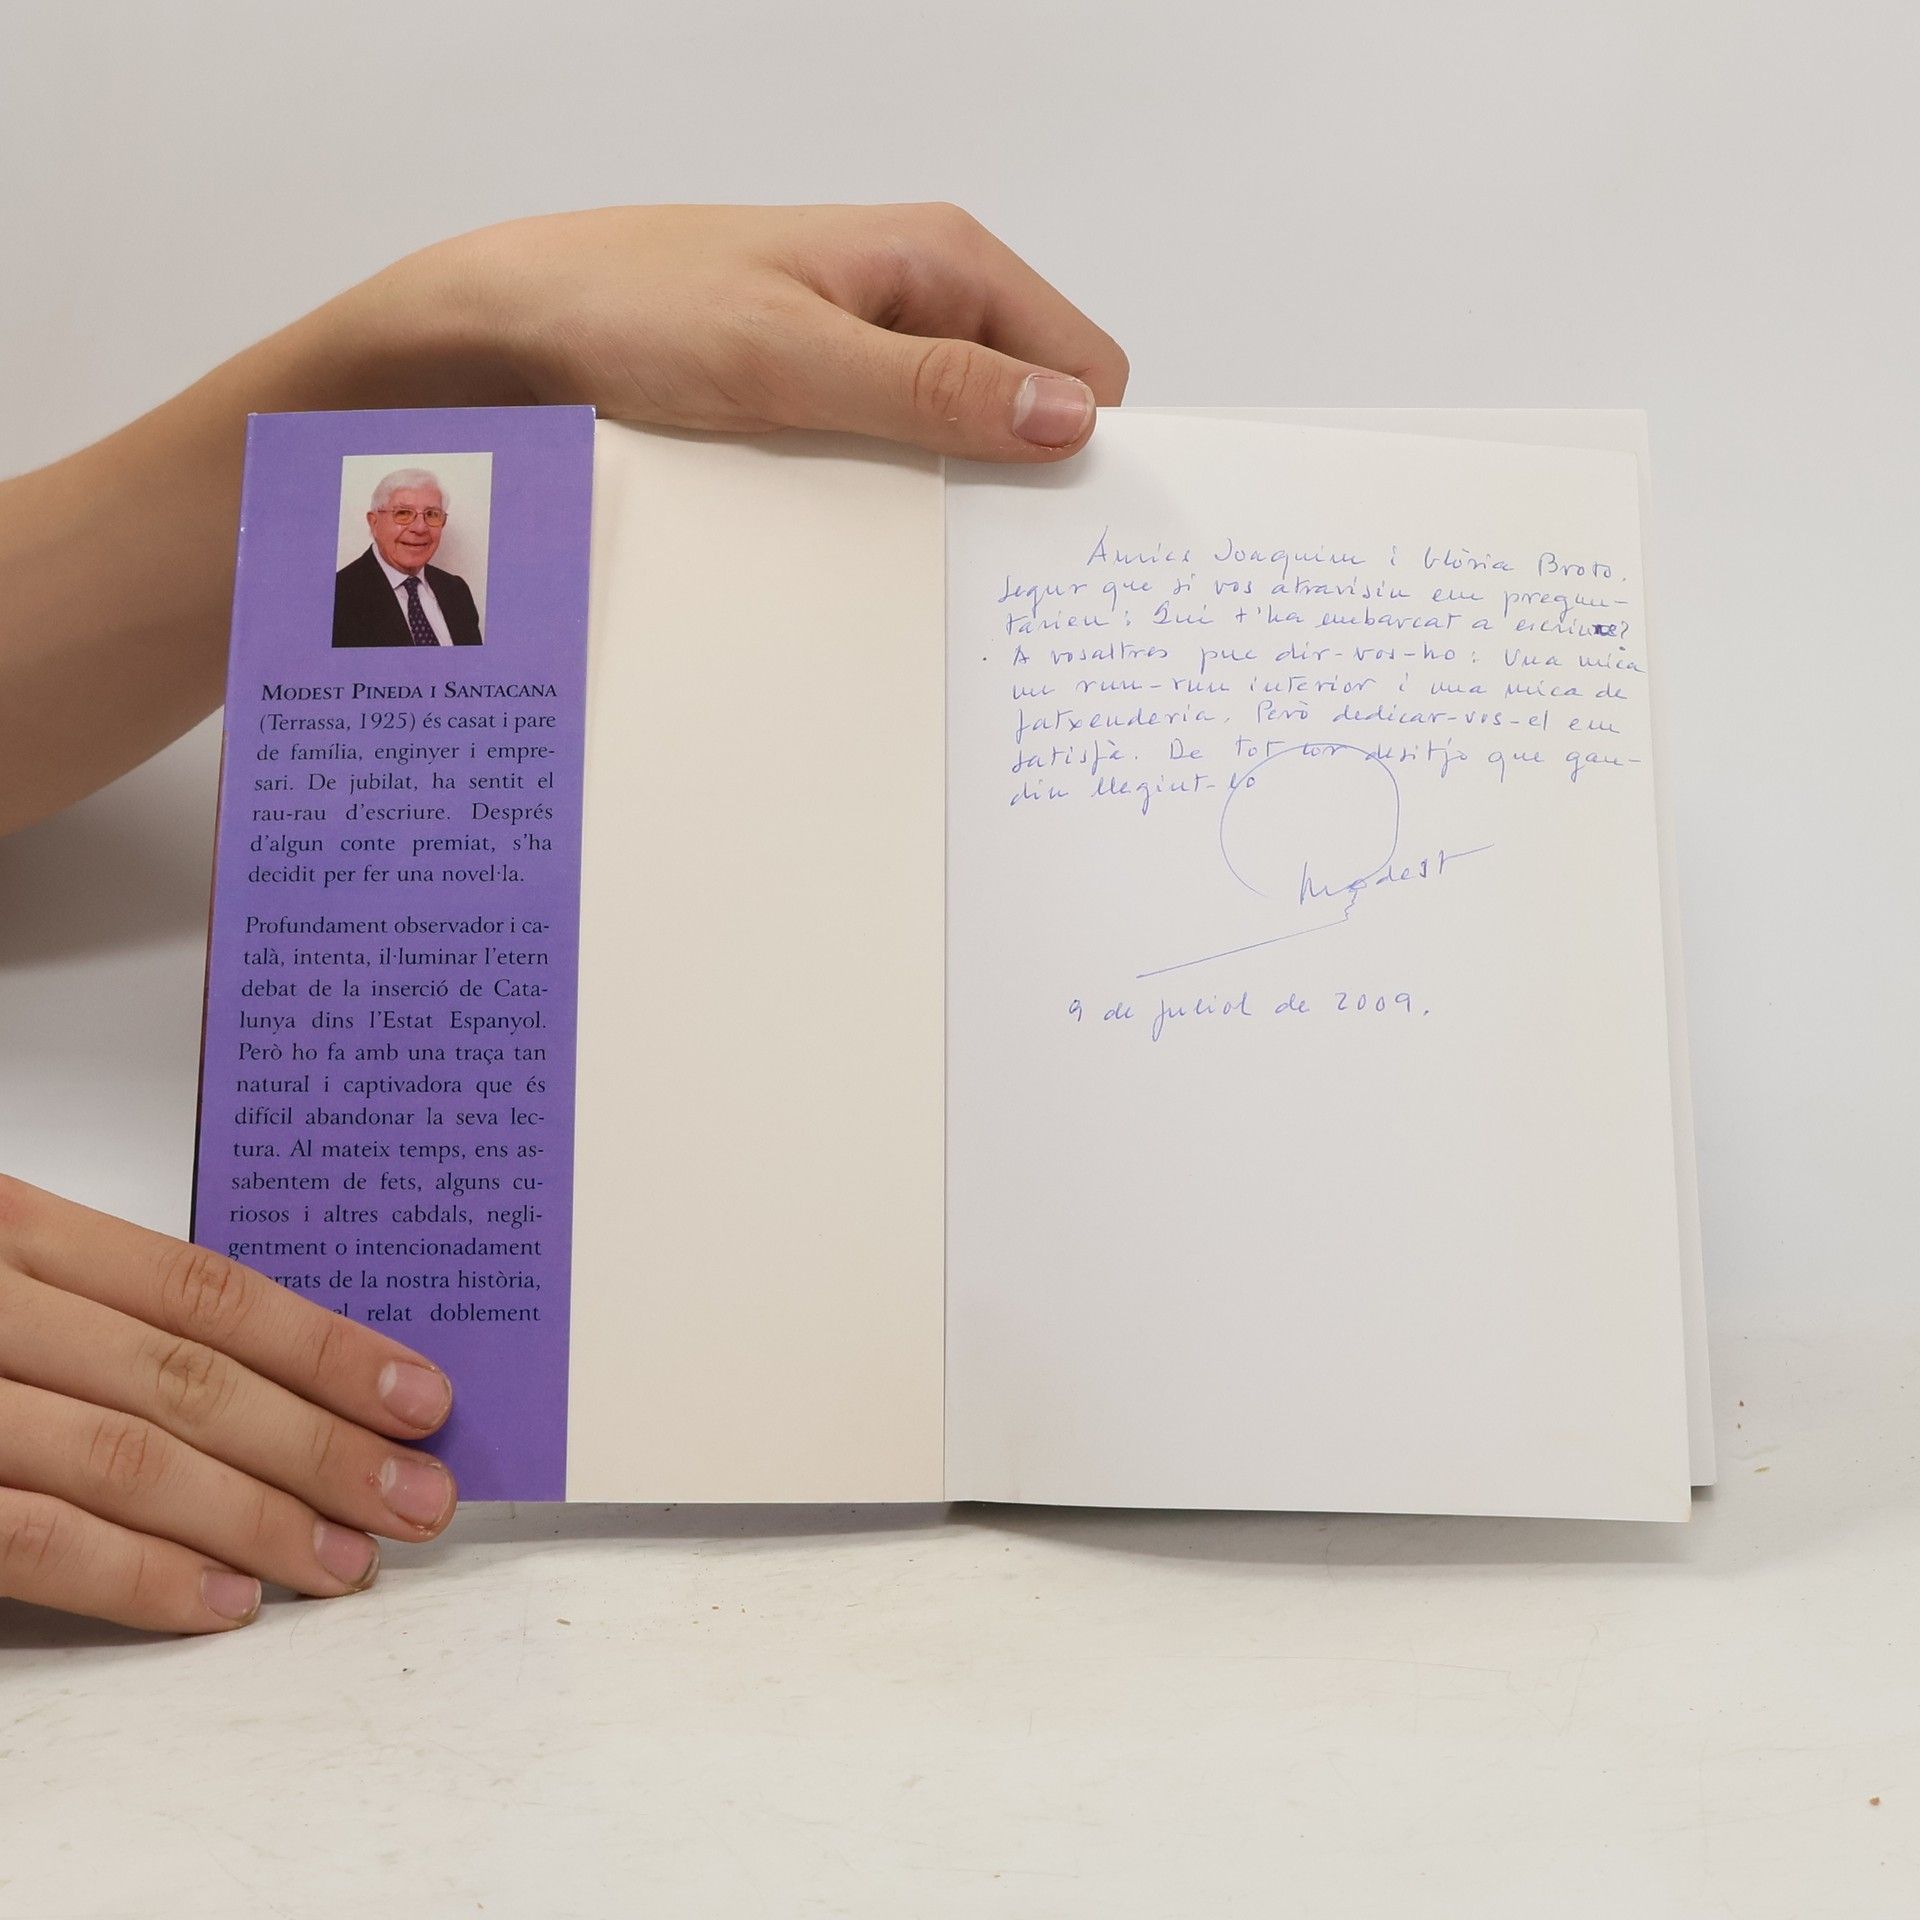 MODEST PINEDA I SANTACANA
(Terrassa, 1925) és casat i pare
de família, enginyer i empre-
sari. De jubilat, ha sentit el
rau-rau d'escriure. Després
d'algun conte premiat, s'ha
decidit per fer una novel·la.
Profundament observador i ca-
talà, intenta, il·luminar l'etern
debat de la inserció de Cata-
lunya dins l'Estat Espanyol.
Però ho fa amb una traça tan
natural i captivadora que és
difícil abandonar la seva lec-
tura. Al mateix temps, ens as-
sabentem de fets, alguns cu-
riosos i altres cabdals, negli-
gentment o intencionadament
de la nostra història,
el relat doblement
Amics Joaquim i Glòria Broto.
Segur que si vos atravisiu em pregun-
tarieu: Qui t'ha embarcat a
A vosaltres puc dir-vos-ho: Una mica
un run-run interior i una mica de
fatxenderia. Però dedicar-vos-el em
satisfà. De tot cor desitjo que gau-
diu llegint-lo
Modest
9 de juliol de 2009.